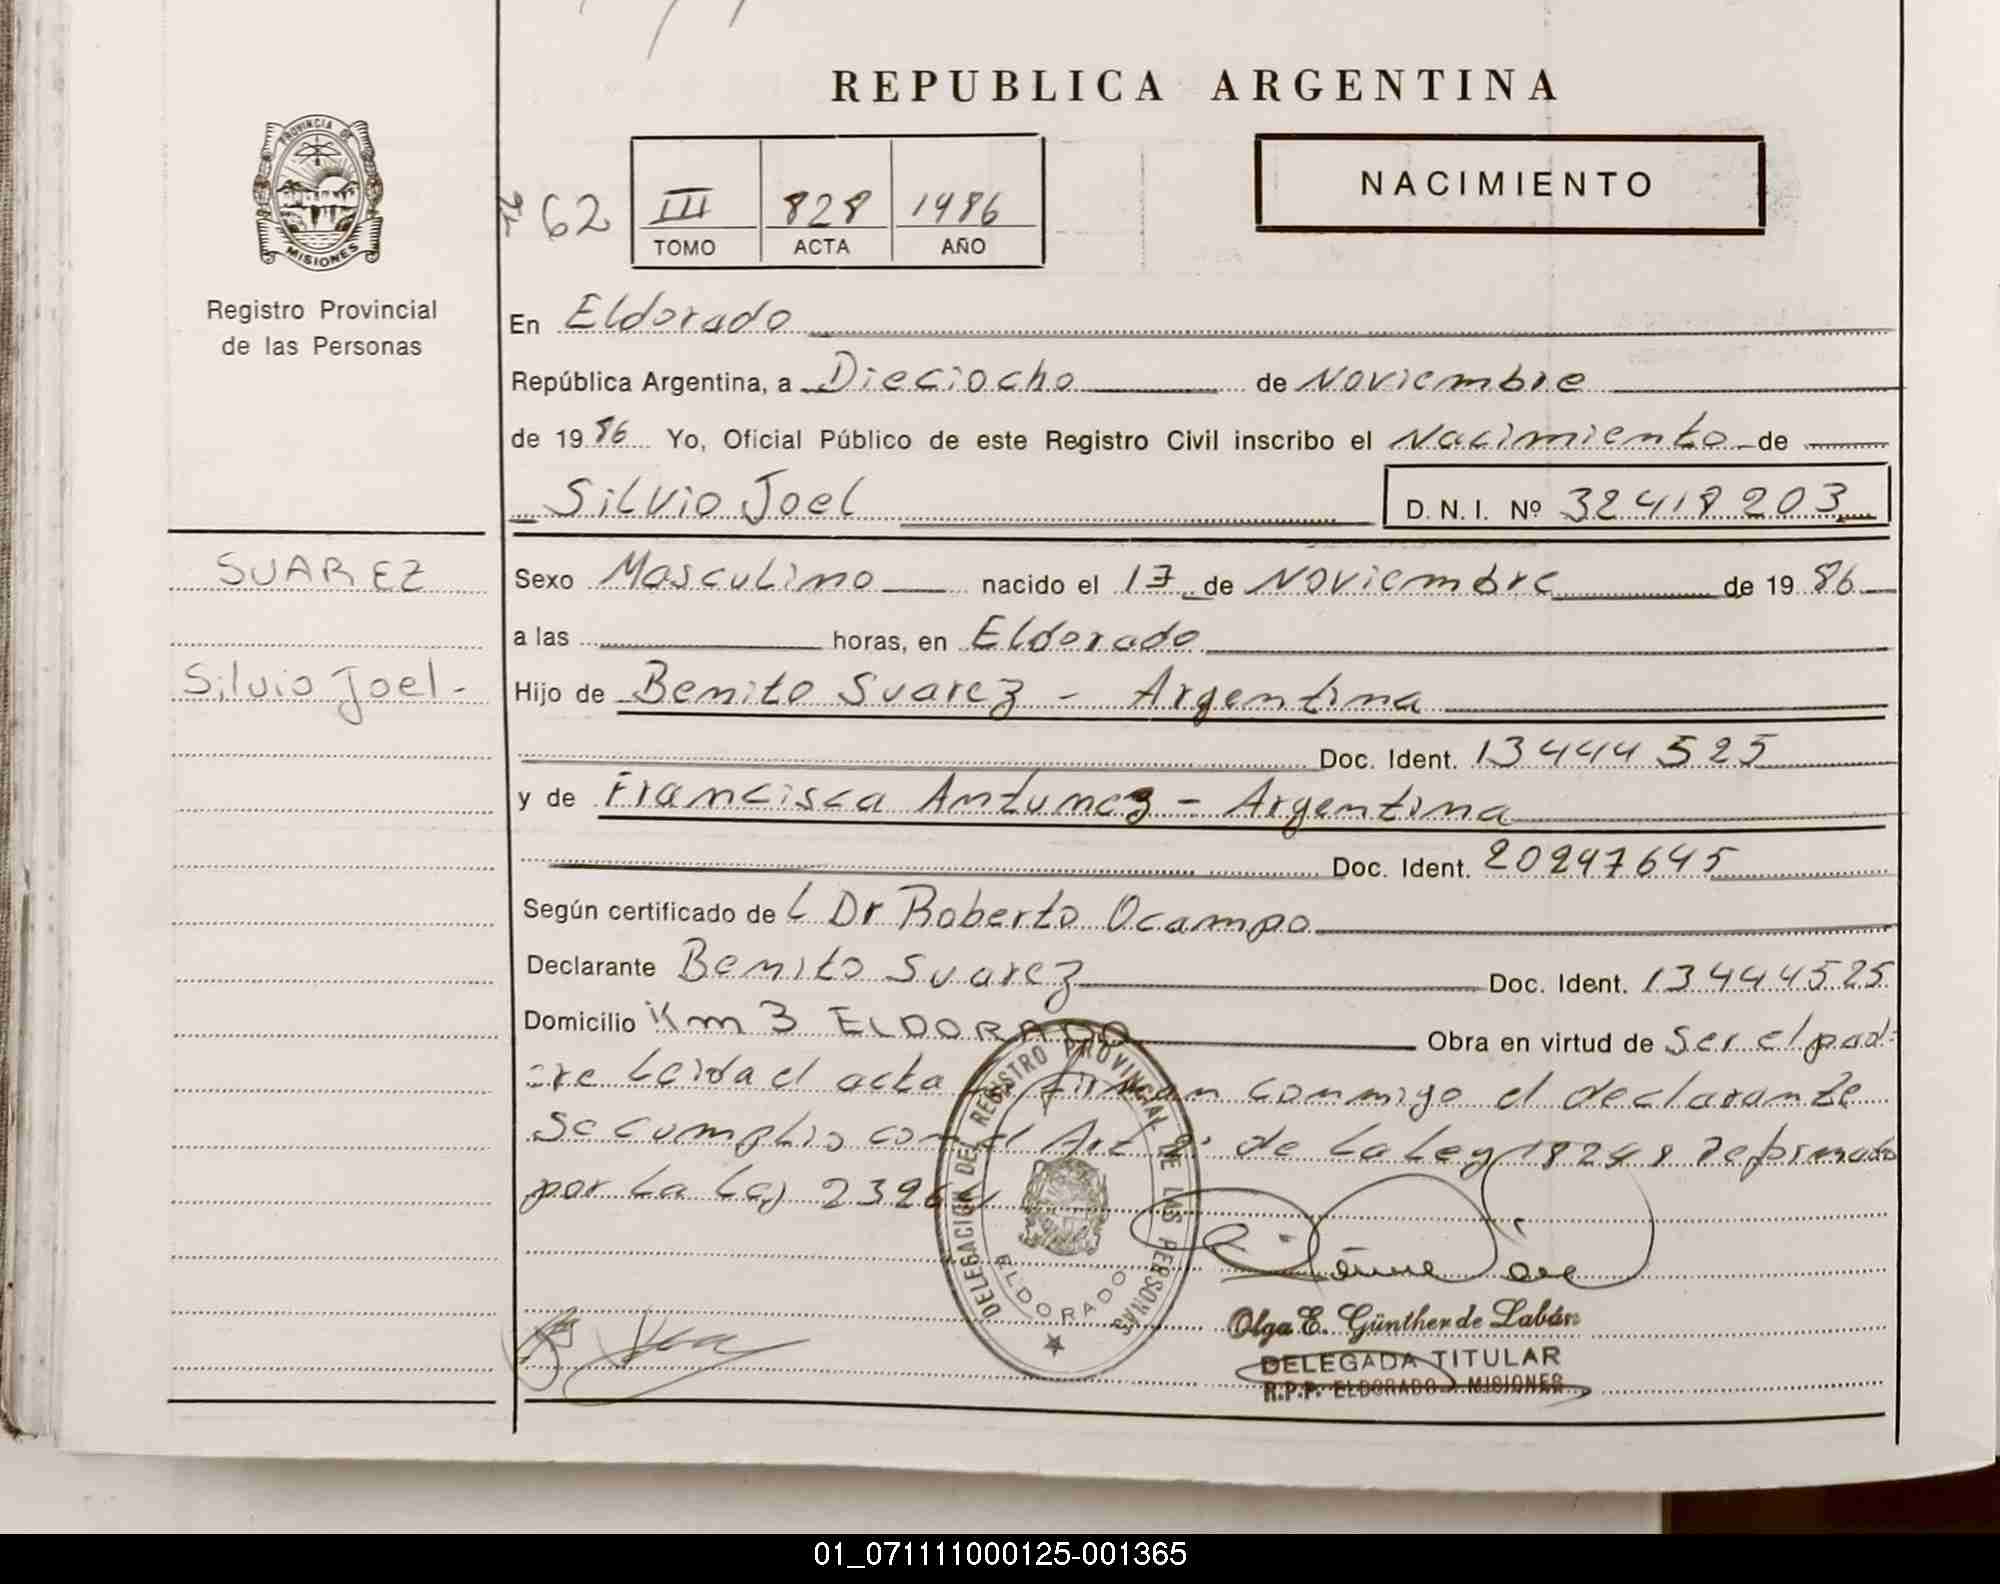 REPUBLICA ARGENTINA
PROVINCIA DE
MISIONES
Registro Provincial
de las Personas
62
III 828 1986
TOMO ACTA AÑO
NACIMIENTO
En Eldorado
República Argentina, a Dieciocho de Noviembre
de 1986 Yo, Oficial Público de este Registro Civil inscribo el Nacimiento de
Silvio Joel
D. N. I. Nº 32418203
SUAREZ
Silvio Joel-
Sexo Masculino nacido el 17 de Noviembre de 1986
a las horas, en Eldorado
Hijo de Benito Suarez - Argentina
Doc. Ident. 13444525
y de Francisca Antunez - Argentina
Doc. Ident. 20247645
Según certificado de L Dr Roberto Ocampo
Declarante Benito Suarez Doc. Ident. 13444525
Domicilio Km 3 ELDORADO Obra en virtud de Ser el pad-
-re Leida el acta firman conmigo el declarante
Se cumplio con el Art 2º de La Ley 18248 Reformado
por La Ley 23264
DELEGACION DEL REGISTRO PROVINCIAL DE LAS PERSONAS
ELDORADO
Olga E. Günther de Labán
DELEGADA TITULAR
R.P.P. ELDORADO - MISIONES
01_071111000125-001365